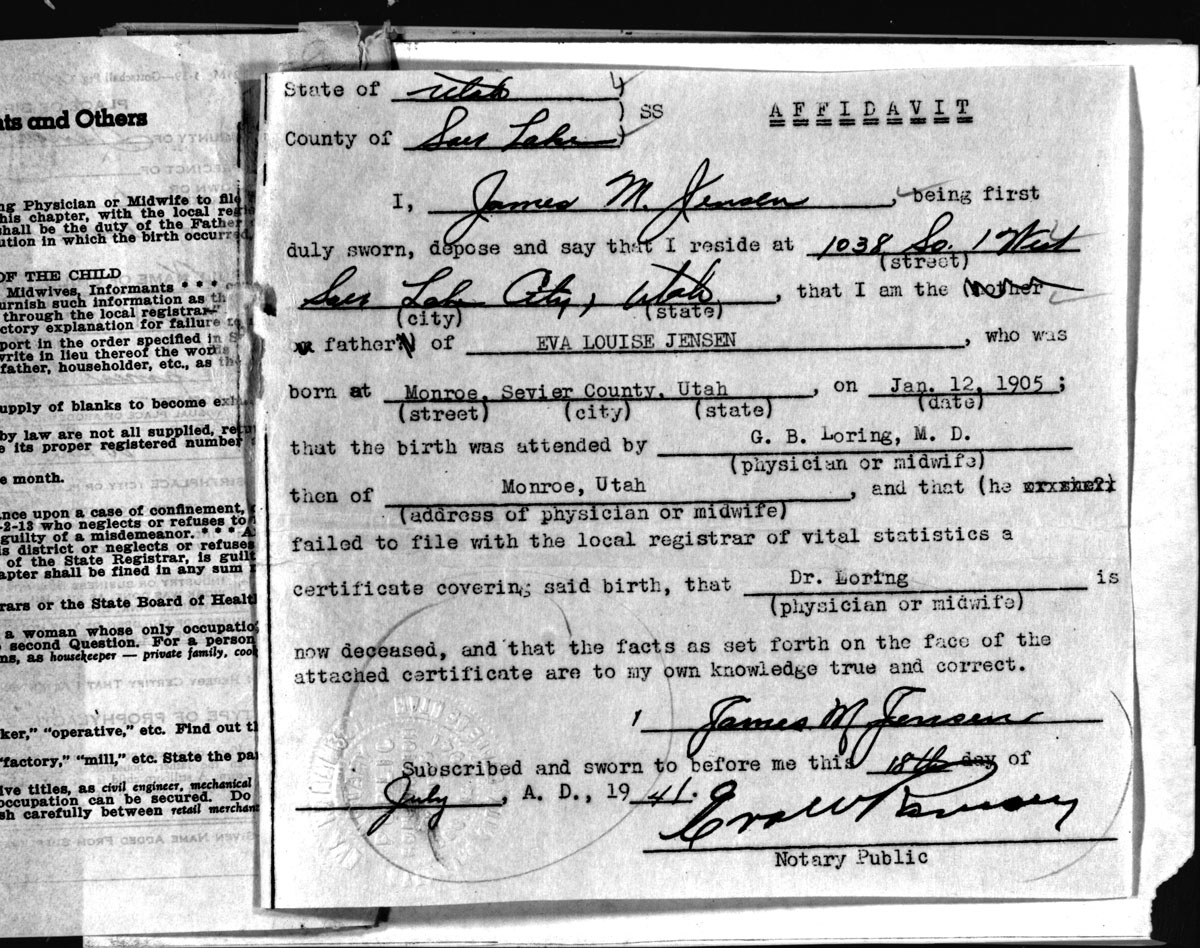 nts and Others
ng Physician or Midwife to file
his chapter, with the local reg
shall be the duty of the Father
ution in which the birth occurred,
OF THE CHILD
Midwives, Informants * * *
urnish such information as th
through the local registrar
ctory explanation for failure to
port in the order specified in S
write in lieu thereof the words
father, householder, etc., as the
upply of blanks to become exh
by law are not all supplied, retu
e its proper registered number
e month.
nce upon a case of confinement,
-2-13 who neglects or refuses to
guilty of a misdemeanor. * * * A
is district or neglects or refuses
of the State Registrar, is guilt
apter shall be fined in any sum
rars or the State Board of Healt
a woman whose only occupatio
second Question. For a person
ns, as housekeeper — private family, cook
ker," "operative," etc. Find out th
"factory," "mill," etc. State the pa
ive titles, as civil engineer, mechanical
occupation can be secured. Do
sh carefully between retail merchant
State of Utah )
) SS AFFIDAVIT
County of Salt Lake )
I, James M. Jensen, being first
duly sworn, depose and say that I reside at 1038 So. 1 West
(street)
Salt Lake City, Utah, that I am the (mother
(city) (state)
or father) of EVA LOUISE JENSEN, who was
born at Monroe, Sevier County, Utah, on Jan. 12, 1905 ;
(street) (city) (state) (date)
that the birth was attended by G. B. Loring, M. D.
(physician or midwife)
then of Monroe, Utah, and that (he or she?)
(address of physician or midwife)
failed to file with the local registrar of vital statistics a
certificate covering said birth, that Dr. Loring is
(physician or midwife)
now deceased, and that the facts as set forth on the face of the
attached certificate are to my own knowledge true and correct.
James M Jensen
Subscribed and sworn to before me this 18th day of
July, A. D., 19 41.
Eva W Ramsey
Notary Public